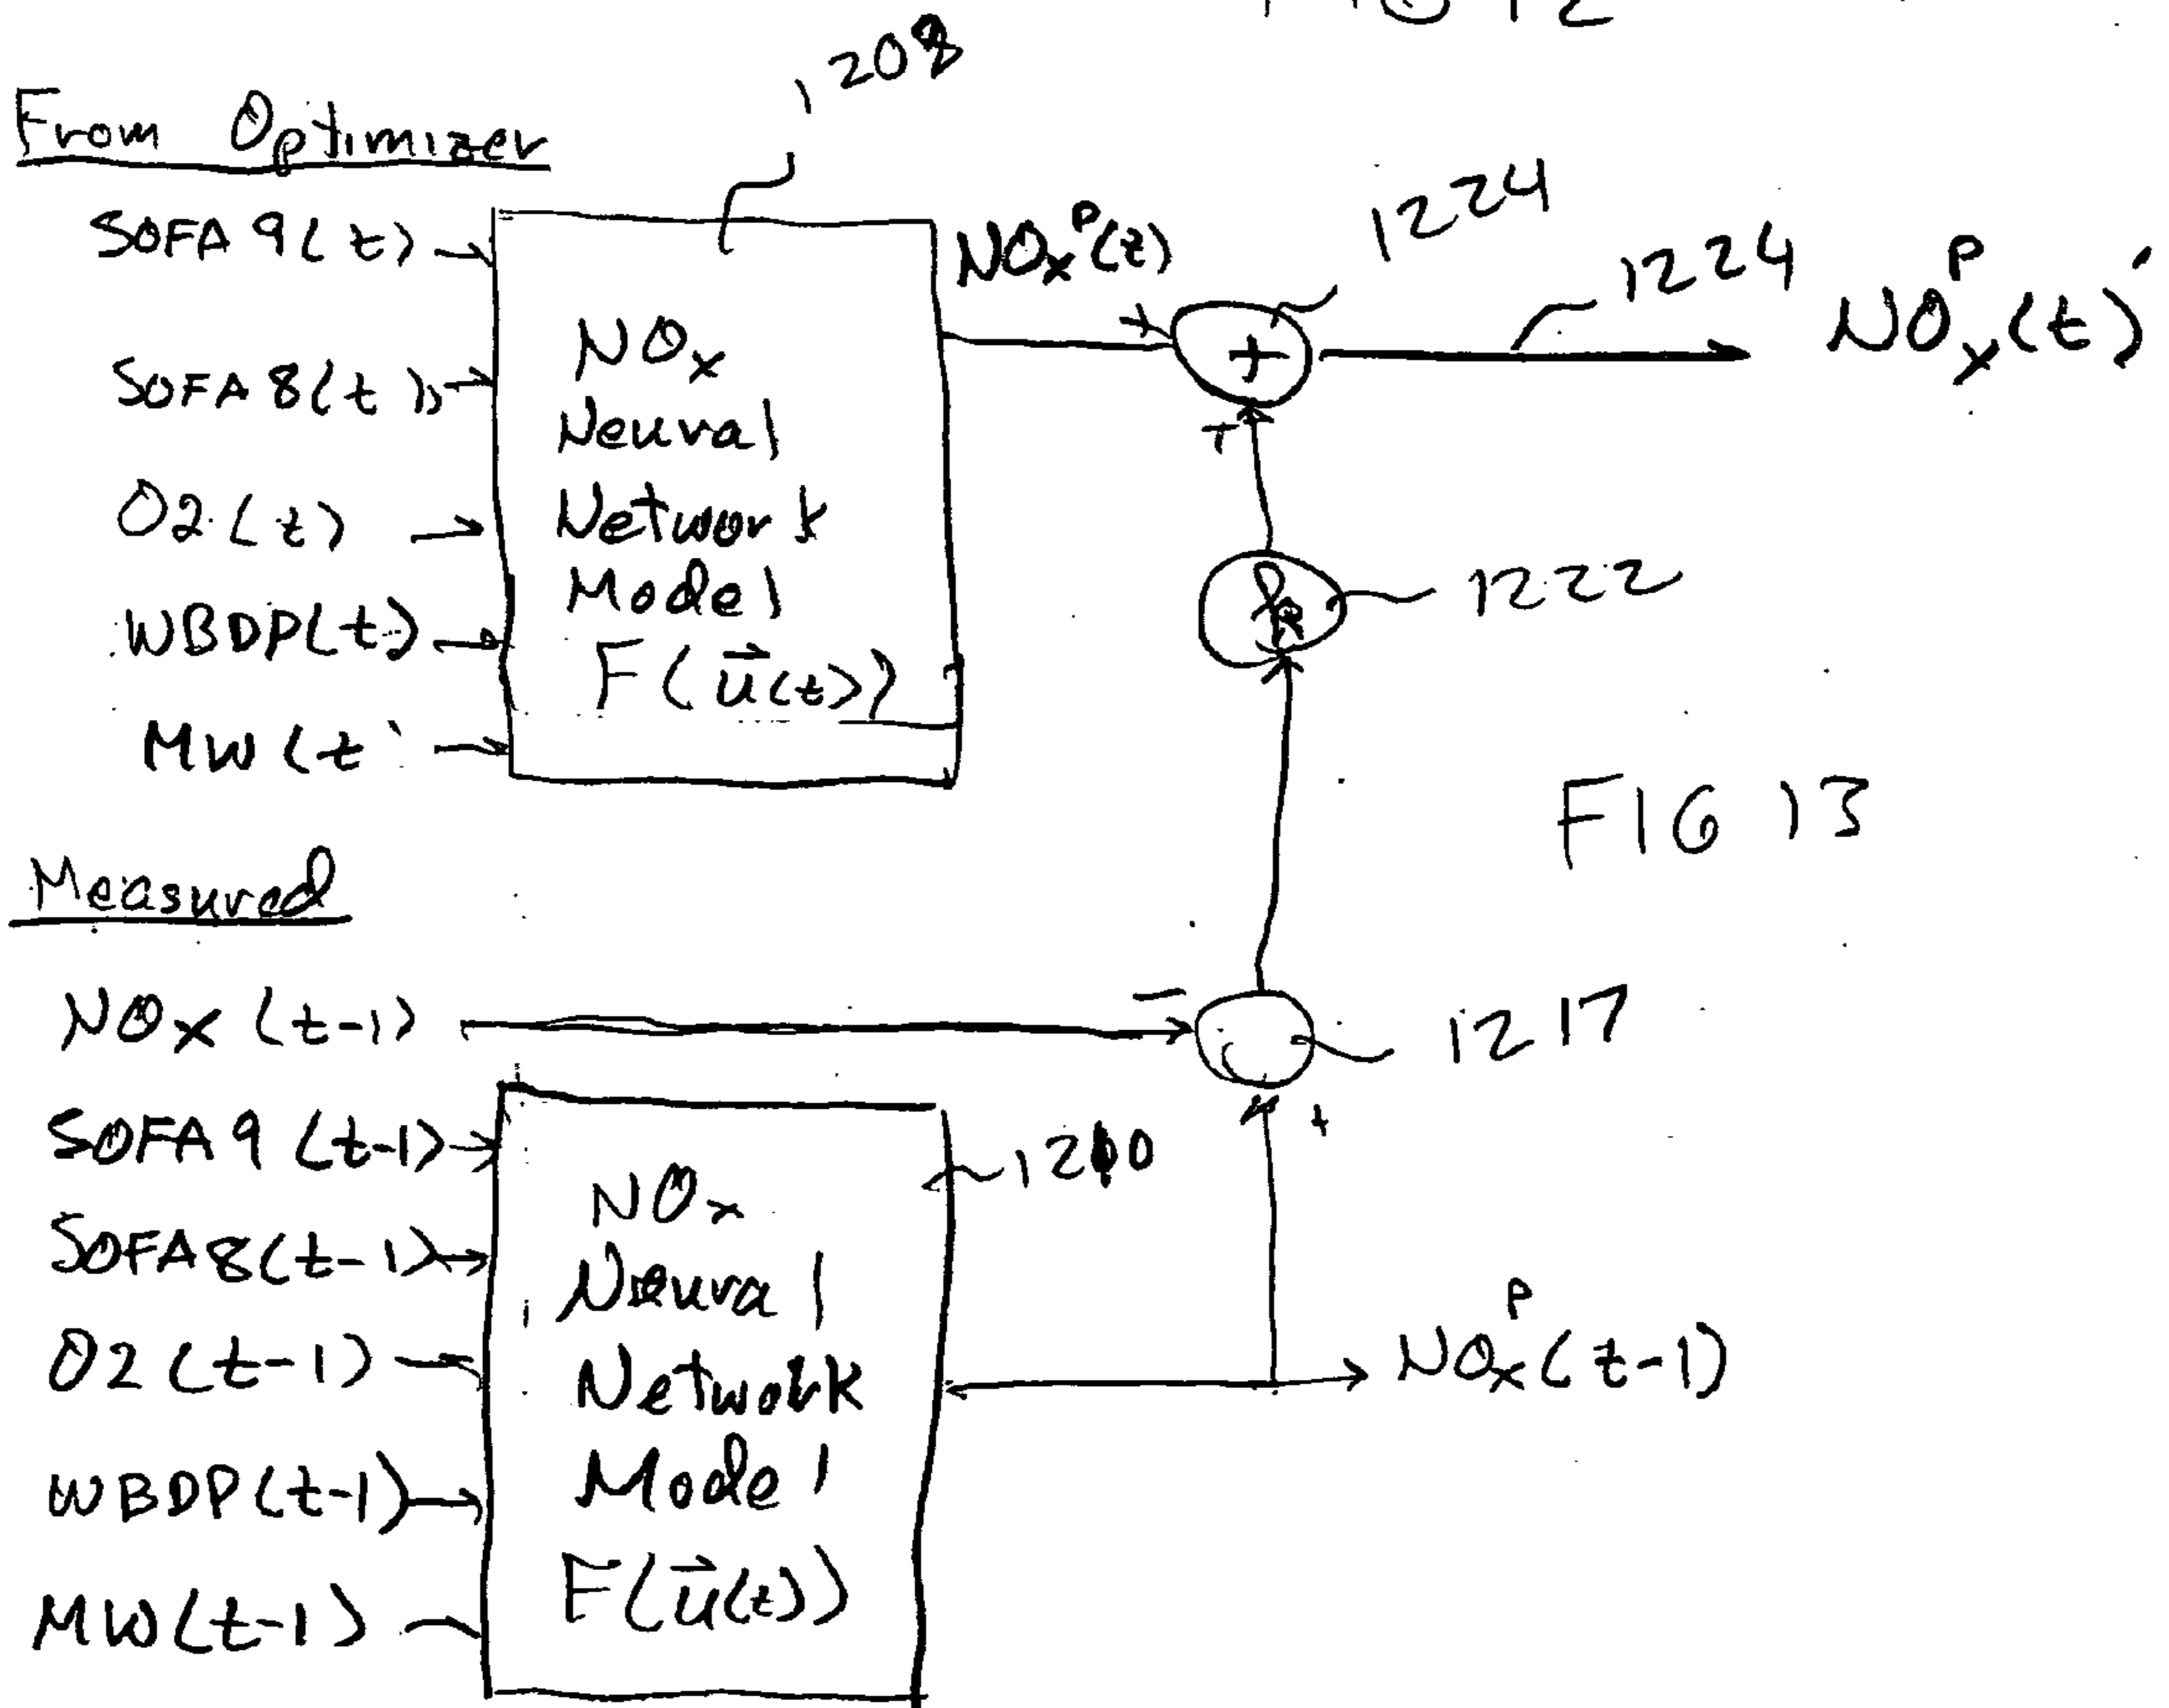 FIG 12
1208
From Optimizer
SOFA 9(t)
SOFA 8(t)
O2(t)
WBDP(t)
MW(t
NOx
Neural
Network
Model
F(u⃗(t))
NOxᴾ(t)
+
1224
1224
NOxᴾ(t)'
+
1222
FIG 13
Measured
NOx (t-1)
-
1217
+
SOFA9 (t-1)
SOFA8(t-1)
O2(t-1)
WBDP(t-1)
MW(t-1)
NOx
Neural
Network
Model
F(u⃗(t))
1210
NOxᴾ(t-1)